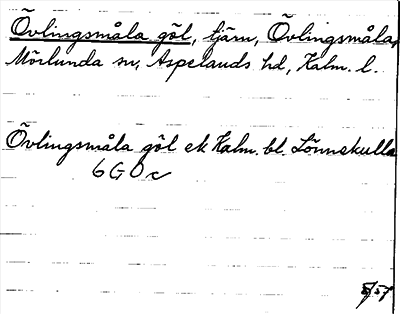 Övlingsmåla göl, tjärn, Övlingsmåla,
Mörlunda sn, Aspelands hd, Kalm. l.
Övlingsmåla göl ek Kalm. bl. Lönnekulla
6 G O c
57